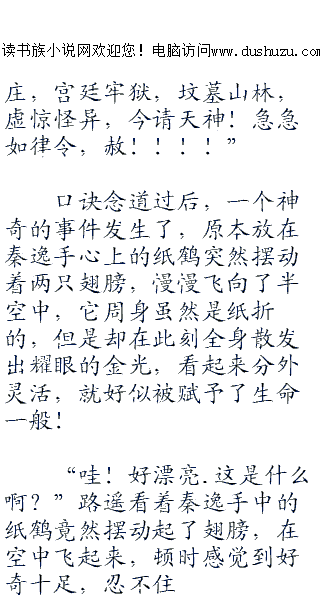 读书族小说网欢迎您！电脑访问www.dushuzu.com,
庄，宫廷牢狱，坟墓山林，
虚惊怪异，今请天神！急急
如律令，赦！！！！”
口诀念道过后，一个神
奇的事件发生了，原本放在
秦逸手心上的纸鹤突然摆动
着两只翅膀，慢慢飞向了半
空中，它周身虽然是纸折
的，但是却在此刻全身散发
出耀眼的金光，看起来分外
灵活，就好似被赋予了生命
一般！
“哇！好漂亮.这是什么
啊？”路遥看着秦逸手中的
纸鹤竟然摆动起了翅膀，在
空中飞起来，顿时感觉到好
奇十足，忍不住